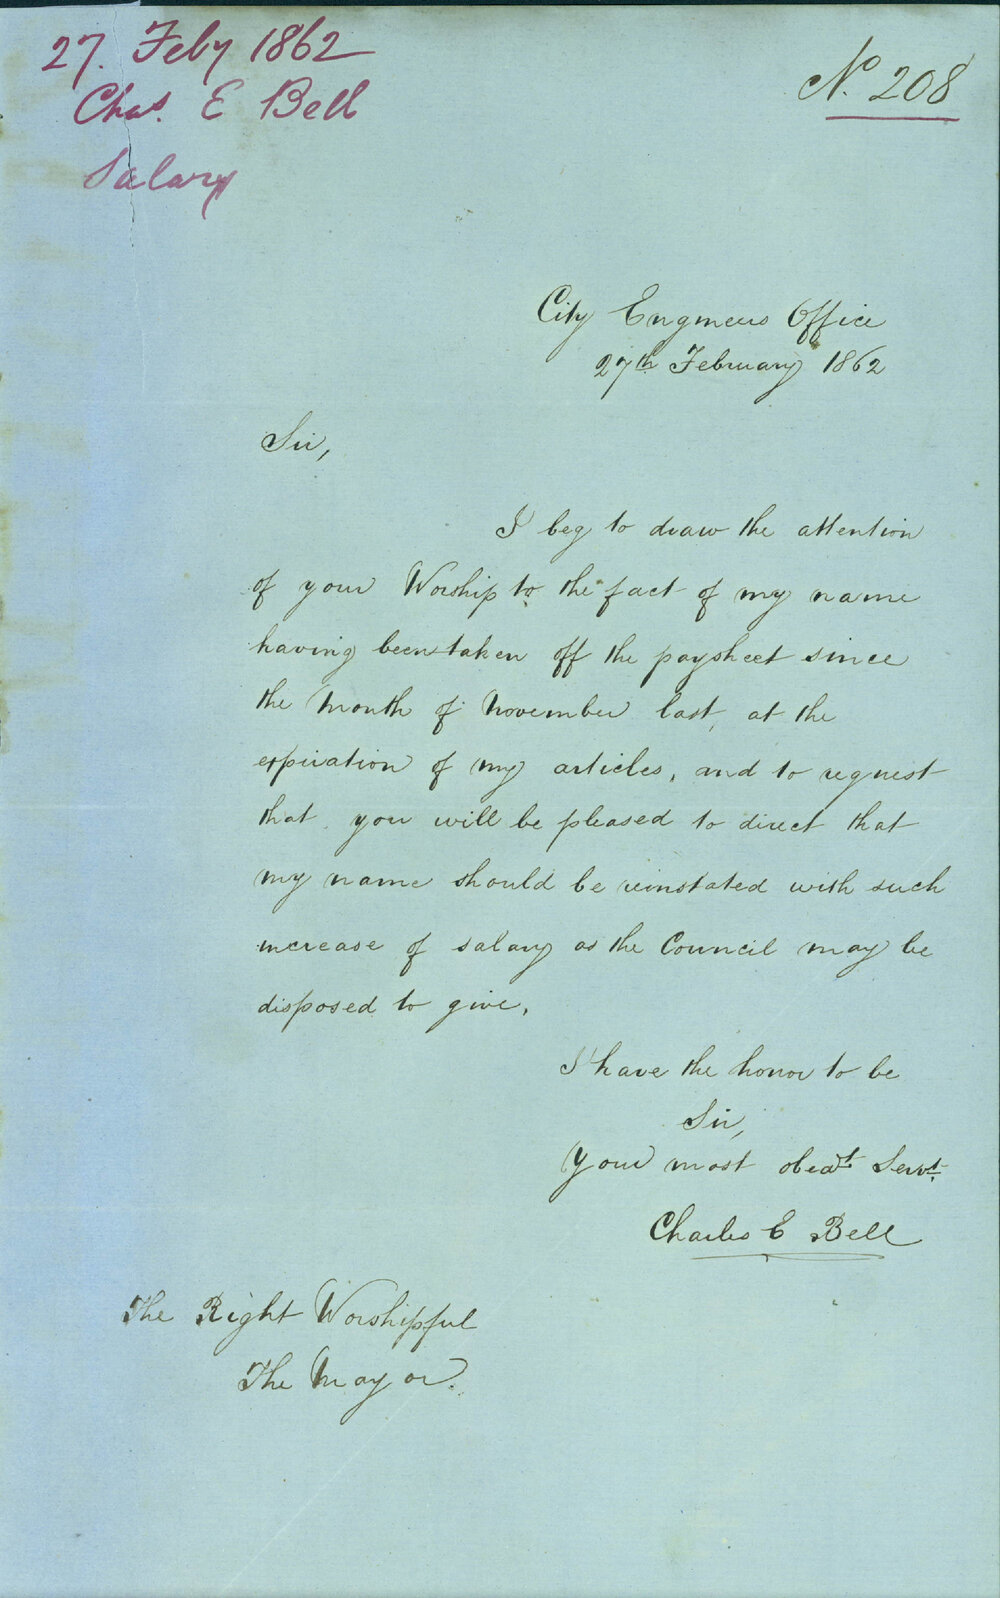 27. Feby 1862
Chas. E Bell
Salary
No. 208
City Engineers Office
27th February 1862
Sir,
I beg to draw the attention
of your Worship to the fact of my name
having been taken off the paysheet since
the month of November last, at the
expiration of my articles, and to request
that you will be pleased to direct that
my name should be reinstated with such
increase of salary as the Council may be
disposed to give.
I have the honor to be
Sir,
Your most obedt. Servt.
Charles E Bell
The Right Worshipful
The Mayor.